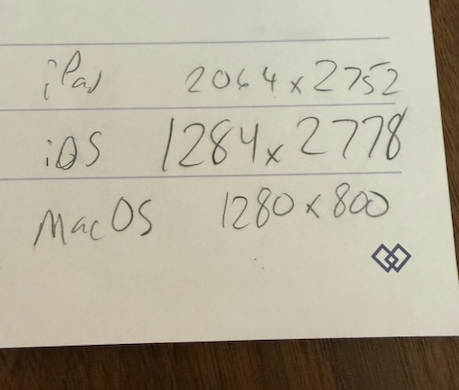 iPad 2064 x 2752
iOS 1284 x 2778
MacOS 1280 x 800